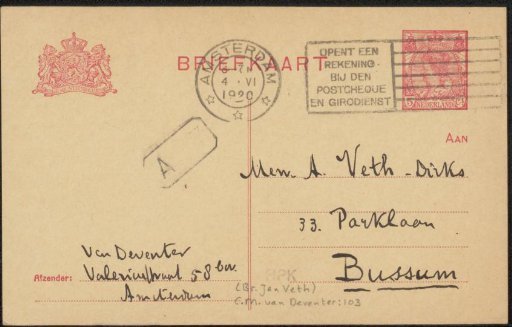 BRIEFKAART
AMSTERDAM
4 · VI
1920
OPENT EEN
REKENING
BIJ DEN
POSTCHEQUE
EN GIRODIENST
NEDERLAND
AAN
A
Mevr. A. Veth-Dirks
33. Parklaan
Bussum
Van Deventer
Afzender: Valeriusstraat 58 bov.
Amsterdam
RPK
(Br. Jan Veth)
C.M. van Deventer: 103